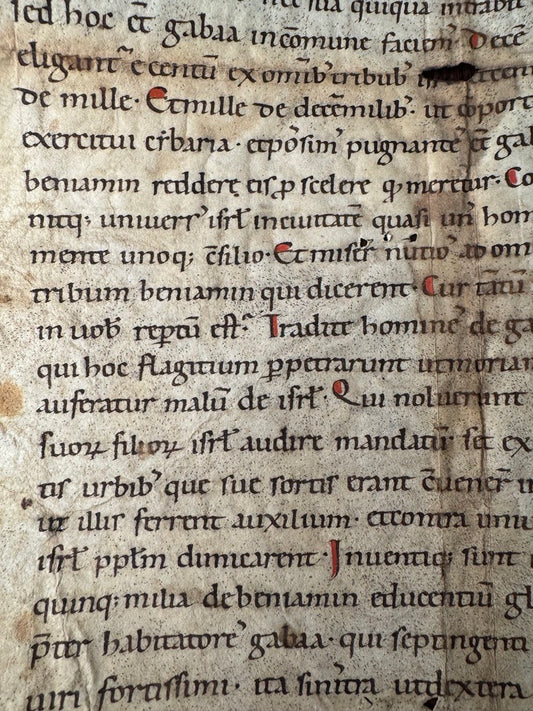 sed hoc cͣt̄ gabaa incōmune faciemꝰ. Decē
eligantᷣ e centū ex omīb' tribub' isrl̄. Et centū
de mille. Et mille de decē milib'. ut cōport
exercitui cybaria. et pōsimꝰ pugnantes cͣt̄ gab
beniamin reddere eis ꝓ scelere qͩ meretur. Co
nitq; universꝰ isrl̄ in civitatē quasi unꝰ hom
mente unoq; c̄silio. Et miserꝰ nūtioꝰ ad om
tribum beniamin qui dicerent. Cur tātū
in uob' reptū est. Tradite homineꝰ de ga
qui hoc flagitium ꝑpetrarunt ut morian
auferatur malū de isrl̄. Qui noluerunt
suoꝝ filioꝝ isrl̄ audire mandatū. set ex
tis urbib' que sue sortis erant c̄uener̄
ut illis ferrent auxilium. et contra uniu
isrl̄ ppl̄m dimicarent. Inuentiq; sunt
quinq; milia de beniamin educentiū gl
p̄ter habitatoreꝰ gabaa. qui septingenti
uiri fortissimi. ita sinr̄tra ut dextera